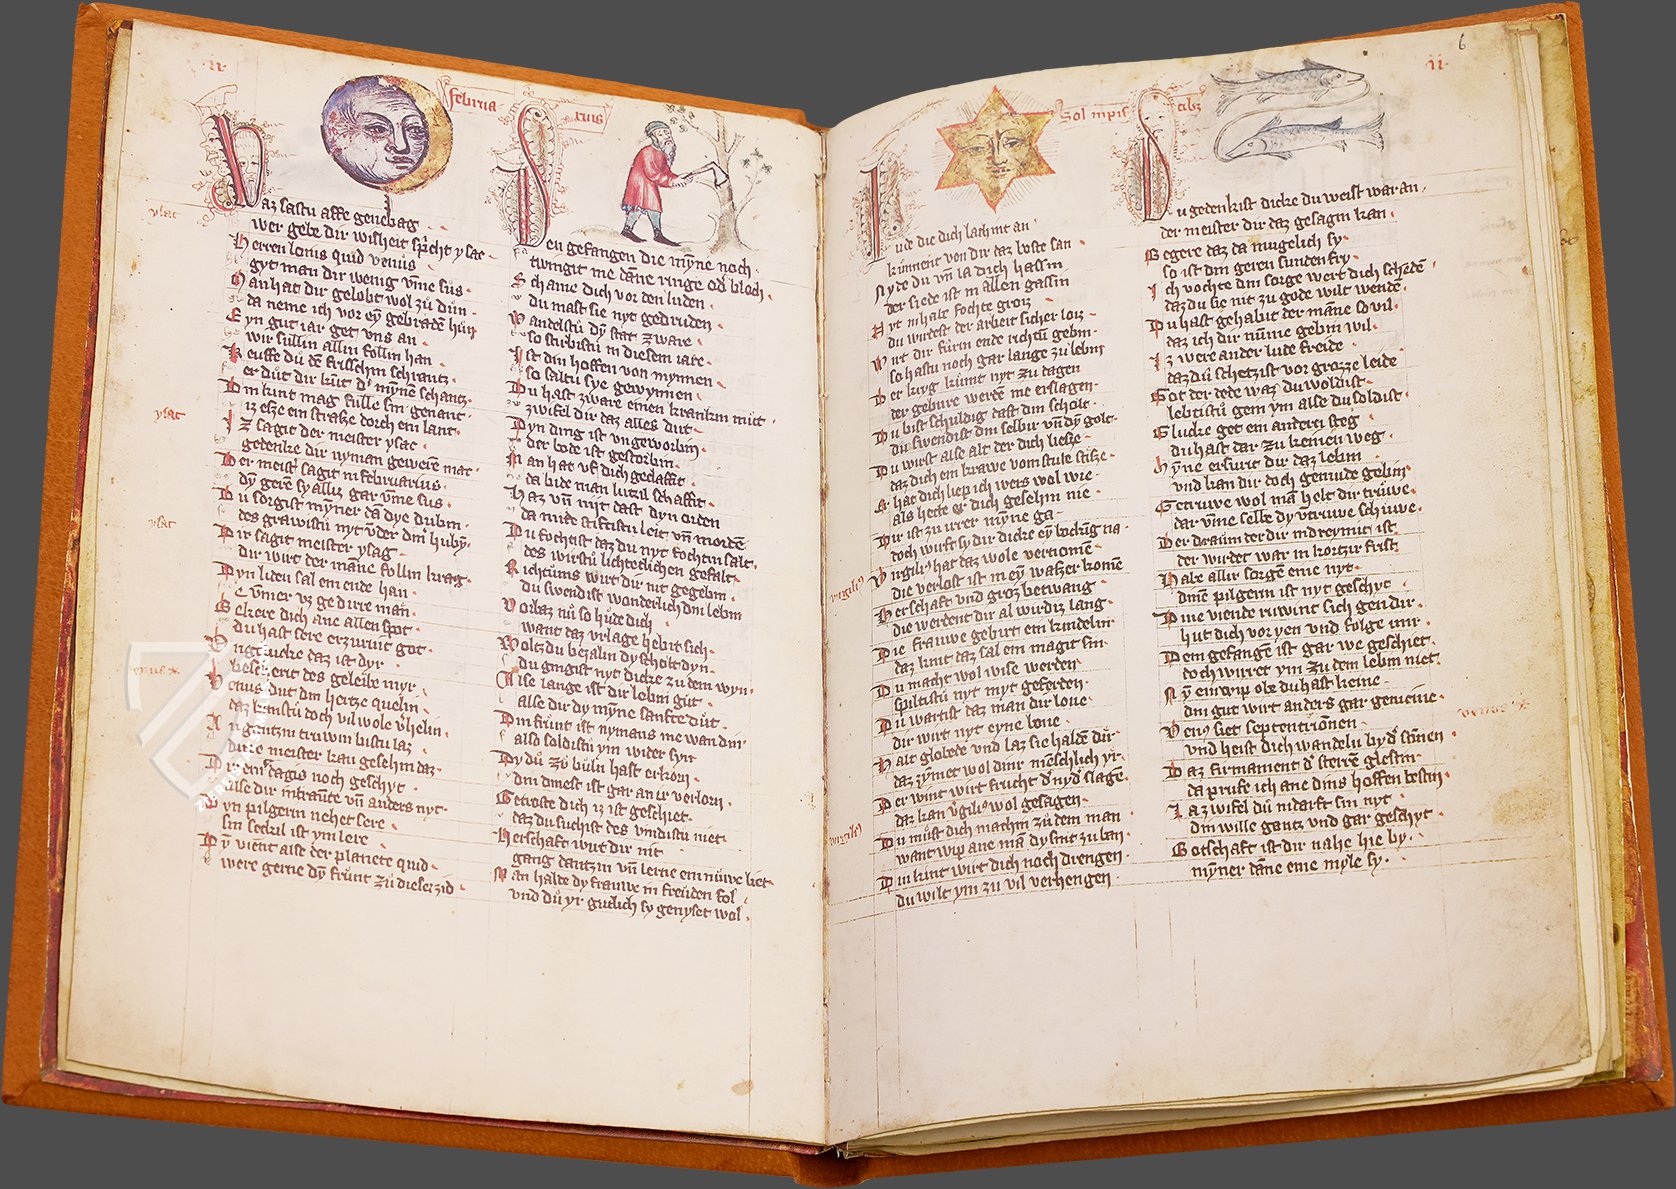 ii
februa
xuis
az sastu affe genebag
wer gebe dir wisheit spiche ysac
ysac
Herren lonis quid venus
gyt man dir wenig vme sus
Man hat dir gelobt wol zu dun
da neme ich vor ey gebraden hun
Eyn gut iar get vns an
wir sullin allin follin han
Keuffe du de frisschin schrantz
er dut dir kunt d' mynen schantz
Din kunt mag fulle sin genant
iz esze ein strasze doich ein lant
ysac
Iz sagit der meister ysac
gedenke dir nyman geweire mac
Der meistir sagit in februarius
dy geren sy alliz gar vme sus
Du sorgist myner da dye dubin
des grawistu nyt vnder din huby
ysac
Dir sagit meister ysag
dir wirt der manne follin krag
Dyn liden sal ein ende han
vz ge dirre man
Bekere dich ane allen spot
du hast sere erzurnt got
Vngelucke daz ist dyr
bescherit des geleibe myr
venus
Venus dut din hertze quelin
daz kanstu doch vil wole vhelin
An gantzin truwin bistu laz
dicke meister kan gesehin daz
Dir em tagis noch geschyt
alse dir intraute vn anders nyt
Dyn pilgerin nehet sere
sin seckil ist ym lere
Dy vient alse der planete quid
were gerne dyn frunt zu dieser zid
en gefangen die myne noch
twingit me dane ringe od bloch
Schame dich vor den luden
du mast sie nyt gedruden
Wandelstu dy stat zware
so stirbistu in diesem iare
Ist din hoffen von mynnen
so saltu sye gewynnen
Du hast zware einen krankin mut
zwifel dir daz alles dut
Dyn ding ist vngeworbin
der bode ist gestorbin
Man hat vf dich geclaffit
da bide man lutzil schaffit
Haz vn nyt dast dyn orden
da mide stiftistu leit vn morden
Du focheist daz du nyt fochtin salt
des wirstu lichtedichen gefalt
Richtums wirt dir nit gegebin
du swendist wonderlich din lebin
Vorbaz nu so hude dich
want daz vrlage hebit sich
Woltzdu bezalin dy scholt dyn
du gingist nyt dicke zu dem wyn
Alse lange ist dir lebin gut
alse dir dy myne sanfte dut
Din frunt ist nymans me wan din
also soldistu ym wider syn
Dy du zu bulin hast erkorn
din dinest ist gar an ir verlorn
Getroste dich iz ist geschiet
daz du suchist des vindistu niet
Herschaft wirt dir nit
gang dantzin vn lerne ein nuwe liet
Man halde dy frauwe in freuden fol
vnd du yr gutlich sy genyset wol
6
ii
Sol inpis
cibz
ude die dich lachint an
kunnent von dir daz boste san
Nyde du vn la dich hassin
der siede ist in allen gassin
Hyt in hale fochte groiz
du wirdest der arbeit sicher loiz
Wirt dir furin ende richtu gebin
so hastu noch gar lange zu lebin
Der kryg kumt nyt zu tagen
der gebure werde me erslagen
Du bist schuldig dast din scholt
du swendist din selbir vn dyn golt
Du wirst alse alt der dich liesze
daz dich ein krawe vom stule stisze
Er hat dich liep ich weis wol wie
als hette er dich gesehin nie
Dir ist zu irrer myne ga
doch wirft sy dir dicke ey bockin na
virgilis
Virgilis hat daz wole vernomen
die verlost ist in eyn waszer komen
Herschaft vnd groz betwang
die werdent dir al wirdiz lang
Die frauwe gebirt ein kindelin
daz kint daz sal ein magit sin
Du macht wol wise werden
spiltistu nyt myt geferden
Du wartist daz man dir lone
dir wirt nyt eyne bone
Halt globede vnd laz sie halde dir
daz zymet wol diner menschlich yr
Der wint wirt frucht d' nyd' slagen
virgilis
daz kan virgilis wol gesagen
Du must dich machin zu dem man
want wip ane man dy sint zu ban
Din kint wirt dich noch drengen
du wilt ym zu vil verhengen
u gedenkist dicke du weist war an
der meister dir daz gesagin kan
Begere daz da mugelich sy
so ist din geren sunden fry
Ich vochte din sorge wert dich schede
daz du sie nit zu gode wilt wende
Du hast gehabit der manne so vil
daz ich dir numme gebin wil
Iz were ander lude freide
daz du schetzist vor grozze leide
Got der dede waz du woldist
lebtistu gein ym alse du soldist
Glucke get ein anderen steg
du hast dar zu keinen weg
Hyne erfurit dir daz lebin
vnd kan dir doch gemude gebin
Getruwe wol man helt dir truwe
dar vme selbe dy vntruwe schuwe
Der draum der dir indreymit ist
der wirdet war in kortzir frist
Habe allir sorgen eine nyt
dine pilgerin ist nyt geschyt
Dine viende ruwint sich gen dir
hut dich vor yen vnd folge mir
Dem gefangen ist gar we geschiet
doch wirret ym zu dem lebin niet
Ny ein wip obe du hast keine
din gut wirt anders gar gemeine
venus
Veny siet septentrionen
vnd heist dich wandeln by d' steinen
Daz firmament d' sterre glestin
da prufe ich ane dins hoffen bestin
Daz wifel du nidarft sin nyt
din wille gantz vnd gar geschyt
Botschaft ist dir nahe hie by
myner dane eine myle sy